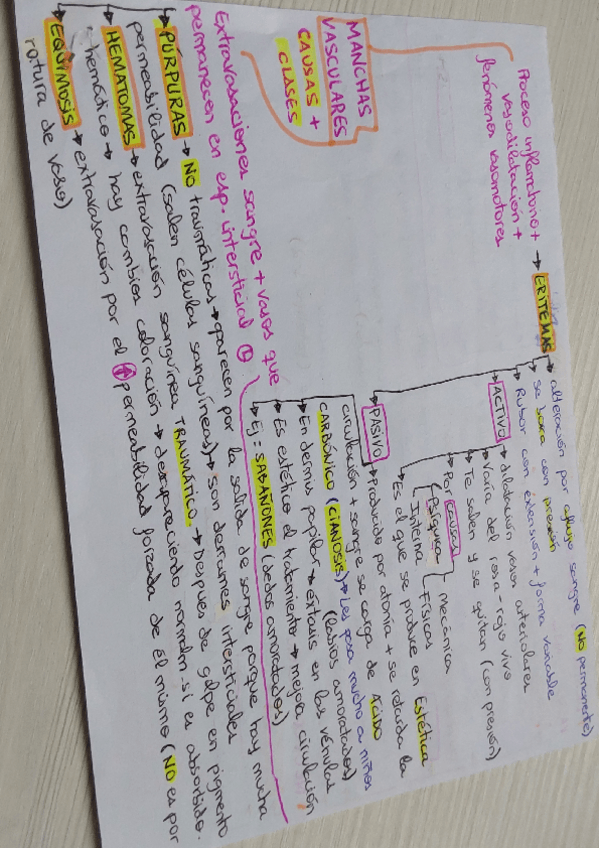 MANCHAS
VASCULARES
CAUSAS +
CLASES
Proceso inflamatorio +
vasodilatación +
fenómenos vasomotores
→ ERITEMAS → alteración por aflujo sangre (NO permanente)
→ se borra con presión
→ Rubor con extensión + forma variable
→ ACTIVO → dilatación vasos arteriolares
→ Varía del rosa-rojo vivo
→ Te salen y se quitan (con presión)
→ Por causas
Psíquica
Interna
Mecánica
Físicas
→ Es el que se produce en Estética
→ PASIVO → Producido por atonía + se retarda la
circulación + sangre se carga de ÁCIDO
CARBÓNICO (CIANOSIS) → les pasa mucho a niños
(labios amoratados)
→ En dermis papilar → éxtasis en las vénulas
→ Es estético el tratamiento → mejora circulación
→ Ej: SABAÑONES (dedos amoratados)
Extravasaciones sangre + vasos que
permanecen en esp. intersticial
→ PÚRPURAS → NO traumáticas → aparecen por la salida de sangre porque hay mucha
permeabilidad (salen células sanguíneas) → son derrames intersticiales
→ HEMATOMAS → extravasación sanguínea TRAUMÁTICO → Después de golpe en pigmento
hemático → hay cambios coloración → desapareciendo normalm. si es absorbido.
→ EQUIMOSIS → extravasación por el ↑ permeabilidad forzada de él mismo (NO es por
rotura de vaso)